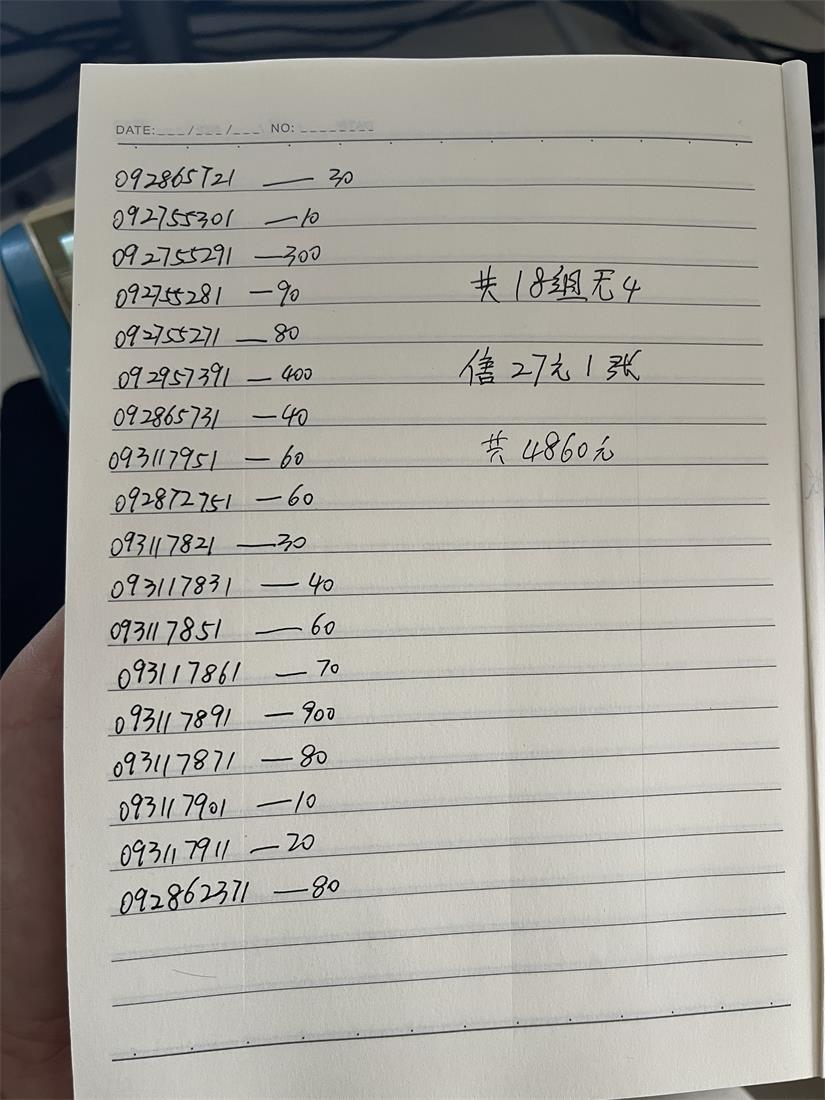 DATE:___/___/___ NO:________
092865721 — 30
092755301 — 10
092755291 — 300
092755281 — 90
092755271 — 80
092957391 — 400
092865731 — 40
093117951 — 60
092872751 — 60
093117821 — 30
093117831 — 40
093117851 — 60
093117861 — 70
093117891 — 900
093117871 — 80
093117901 — 10
093117911 — 20
092862371 — 80
共18组无4
信27元1张
共4860元